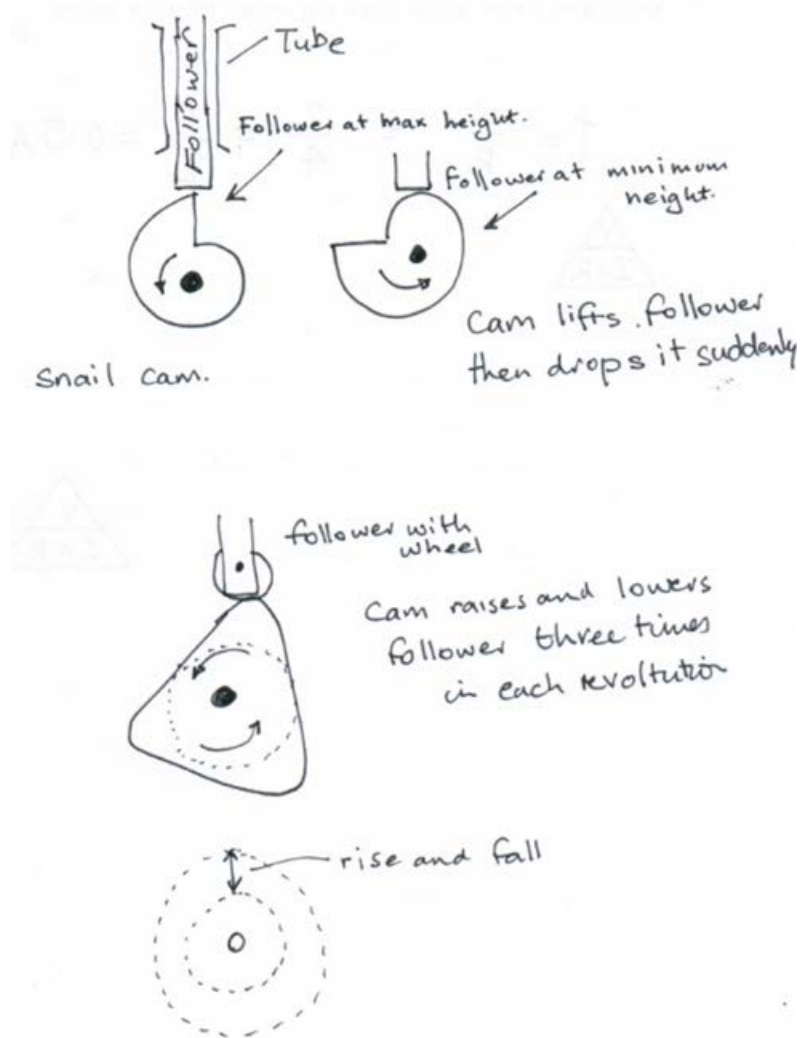 Tube
Follower
Follower at max height.
Follower at minimum
height.
Cam lifts follower
then drops it suddenly
Snail cam.
follower with
wheel
Cam raises and lowers
follower three times
in each revoltution
rise and fall